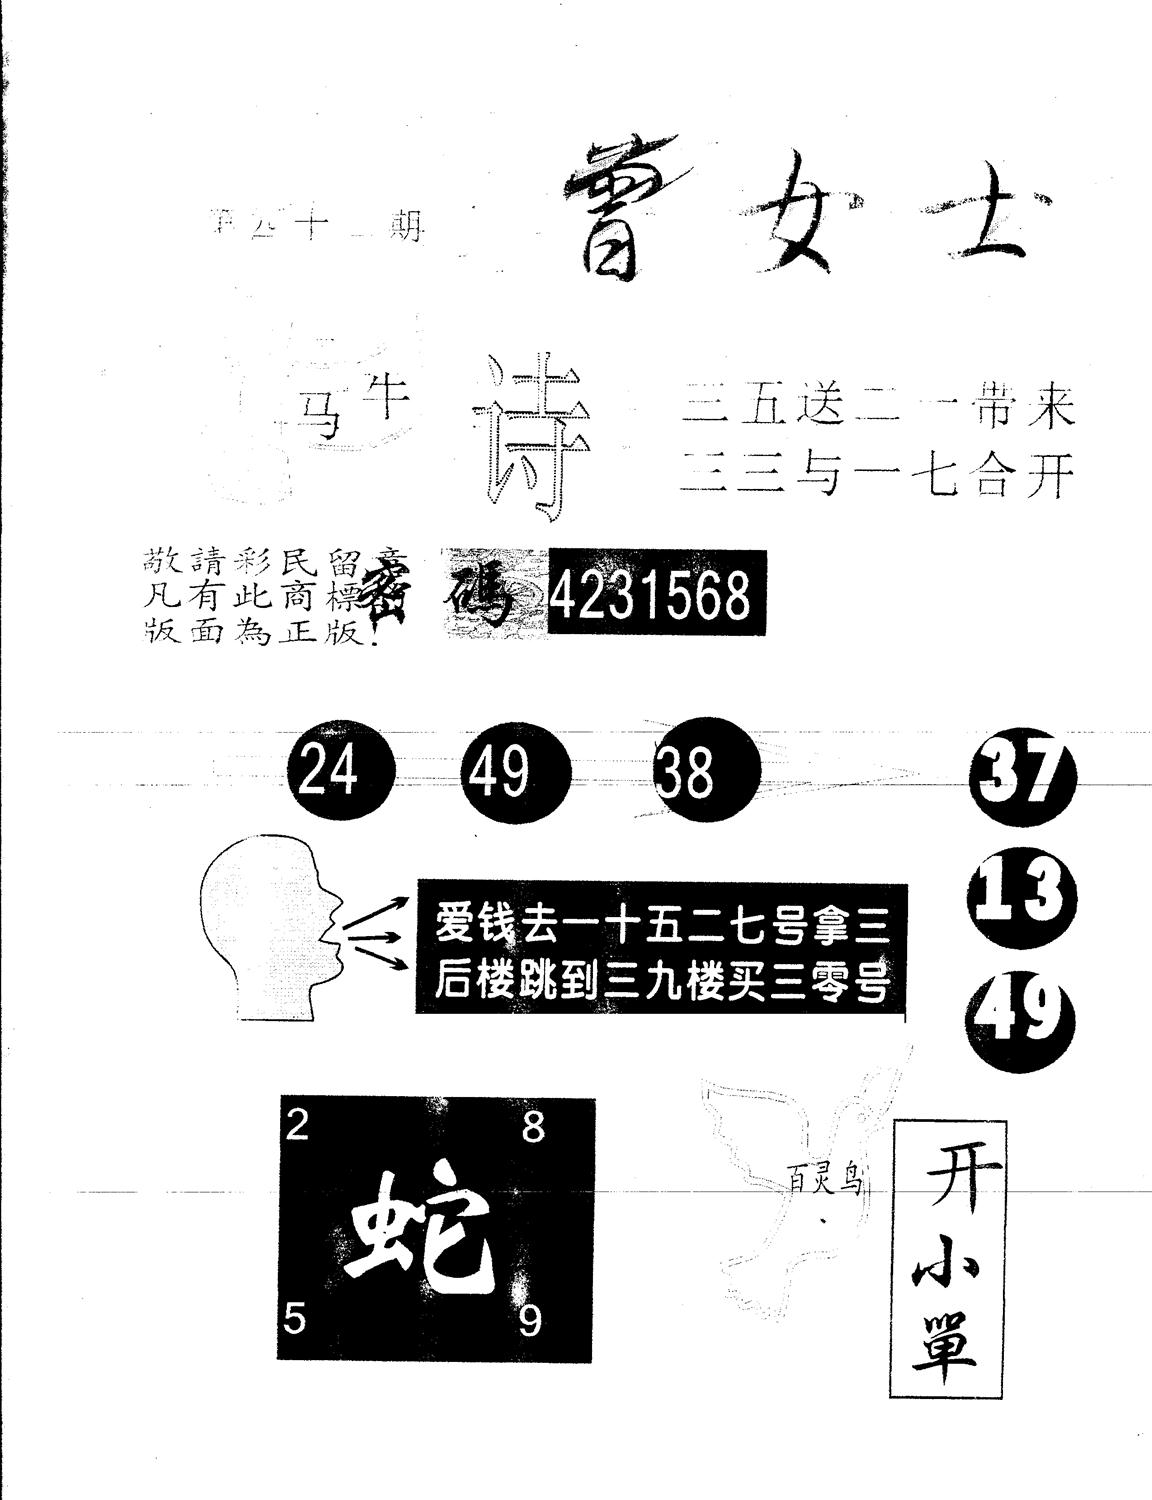 曾女士
第四十二期
马牛
诗
三五送二一带来
三三与一七合开
敬請彩民留意
凡有此商標
版面為正版!
密碼
4231568
24 49 38
37
13
49
爱钱去一十五二七号拿三
后楼跳到三九楼买三零号
2 8
蛇
5 9
百灵鸟
开小單